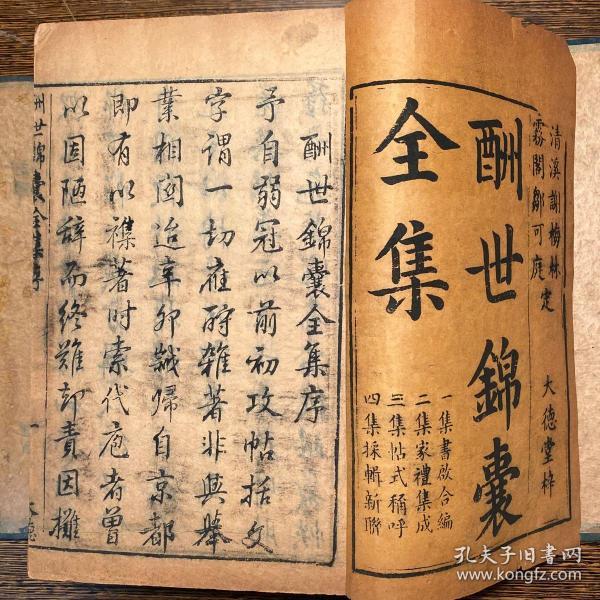 清溪謝梅林
霧閣鄒可庭 定
酬世錦囊
全集
大德堂梓
一集書啟合編
二集家禮集成
三集帖式稱呼
四集採輯新聯
酬世錦囊全集序
予自弱冠以前初攻帖括文
字謂一切應酧雜著非與舉
業相関迨辛卯
歸自京都
即有以襍著时索代庖者曽
以固陋辞而終難却責因
酬世錦囊全集序
一
大德
孔夫子旧书网
www.kongfz.com